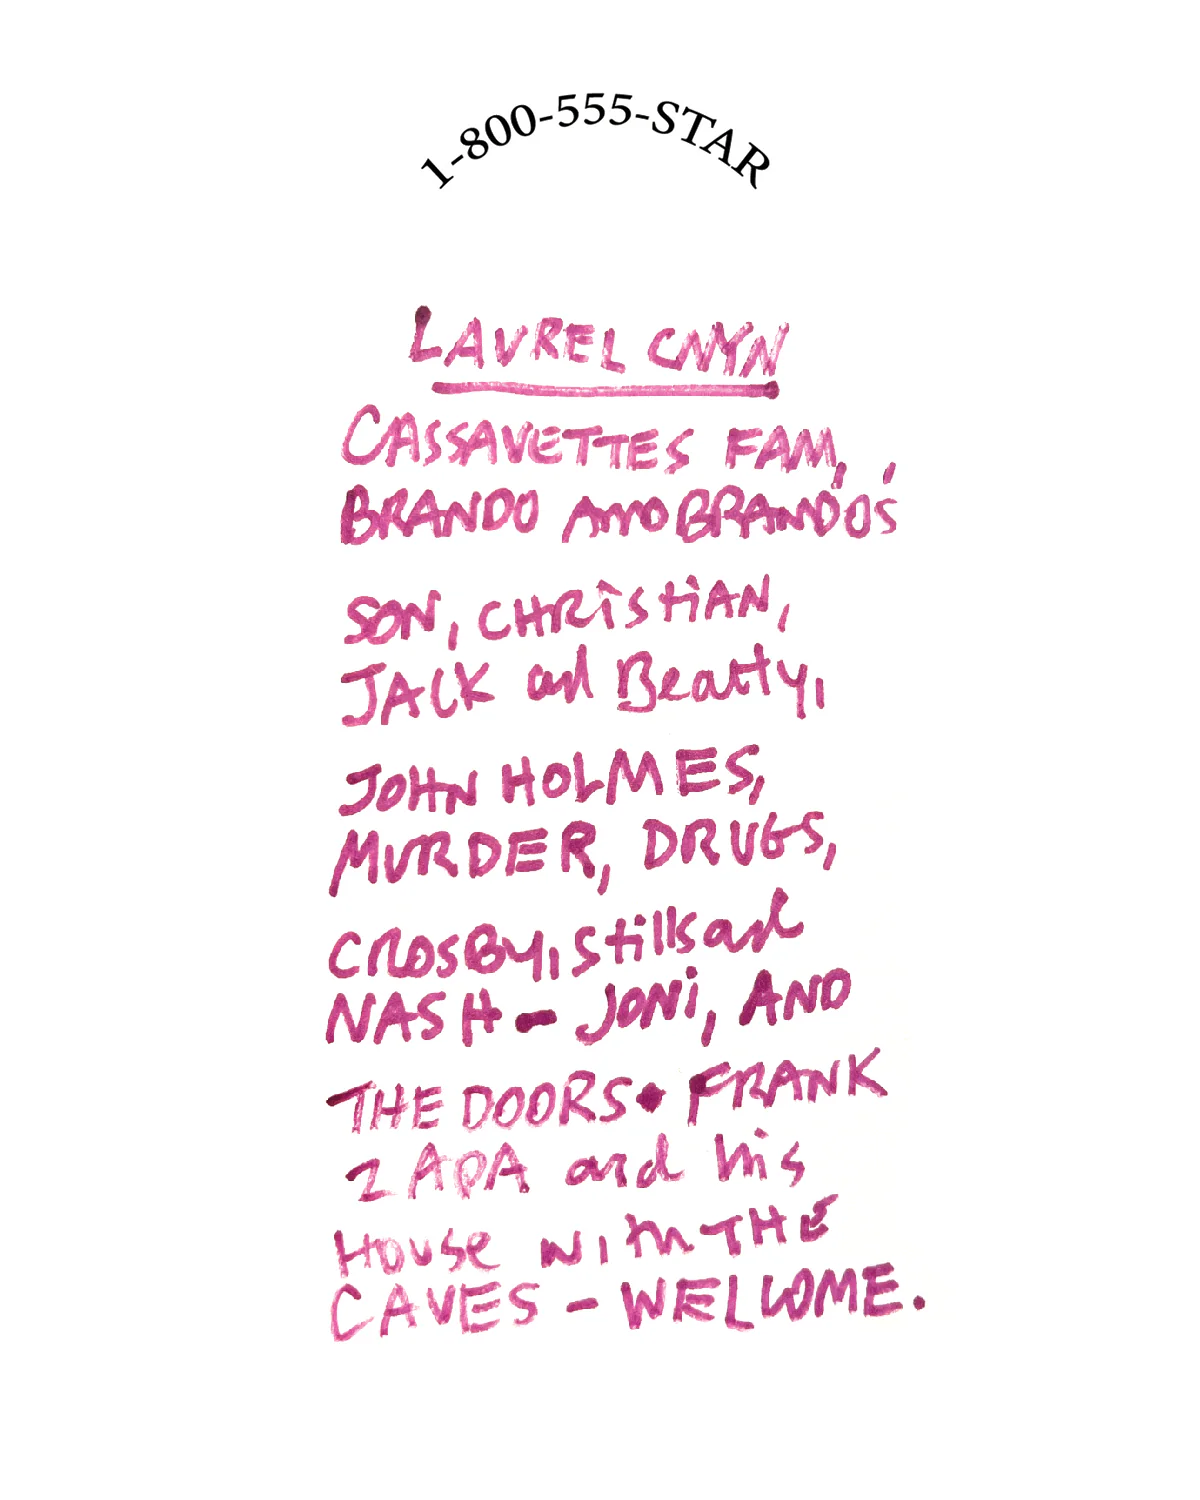 1-800-555-STAR
LAUREL CNYN
CASSAVETTES FAM,
BRANDO AND BRANDO'S
SON, CHRISTIAN,
JACK and Beatty,
JOHN HOLMES,
MURDER, DRUGS,
CROSBY, Stills and
NASH – JONi, AND
THE DOORS • FRANK
ZAPA and his
House with THE
CAVES – WELCOME.